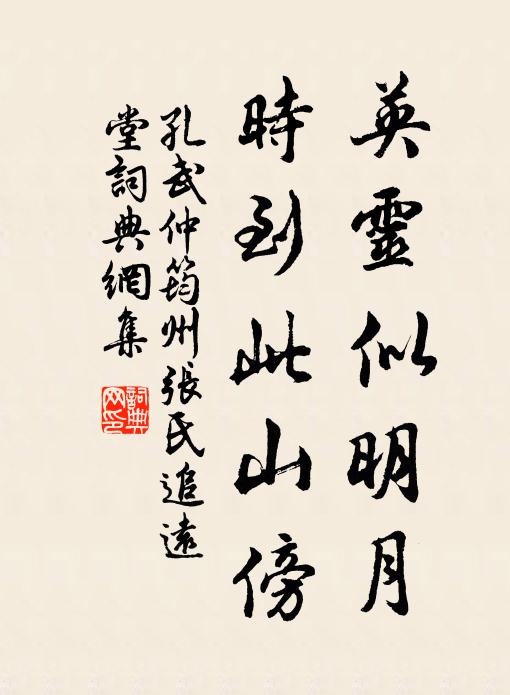 英靈似明月
時到此山傍
孔武仲筠州張氏追遠
堂詞典網集
詞典
网印